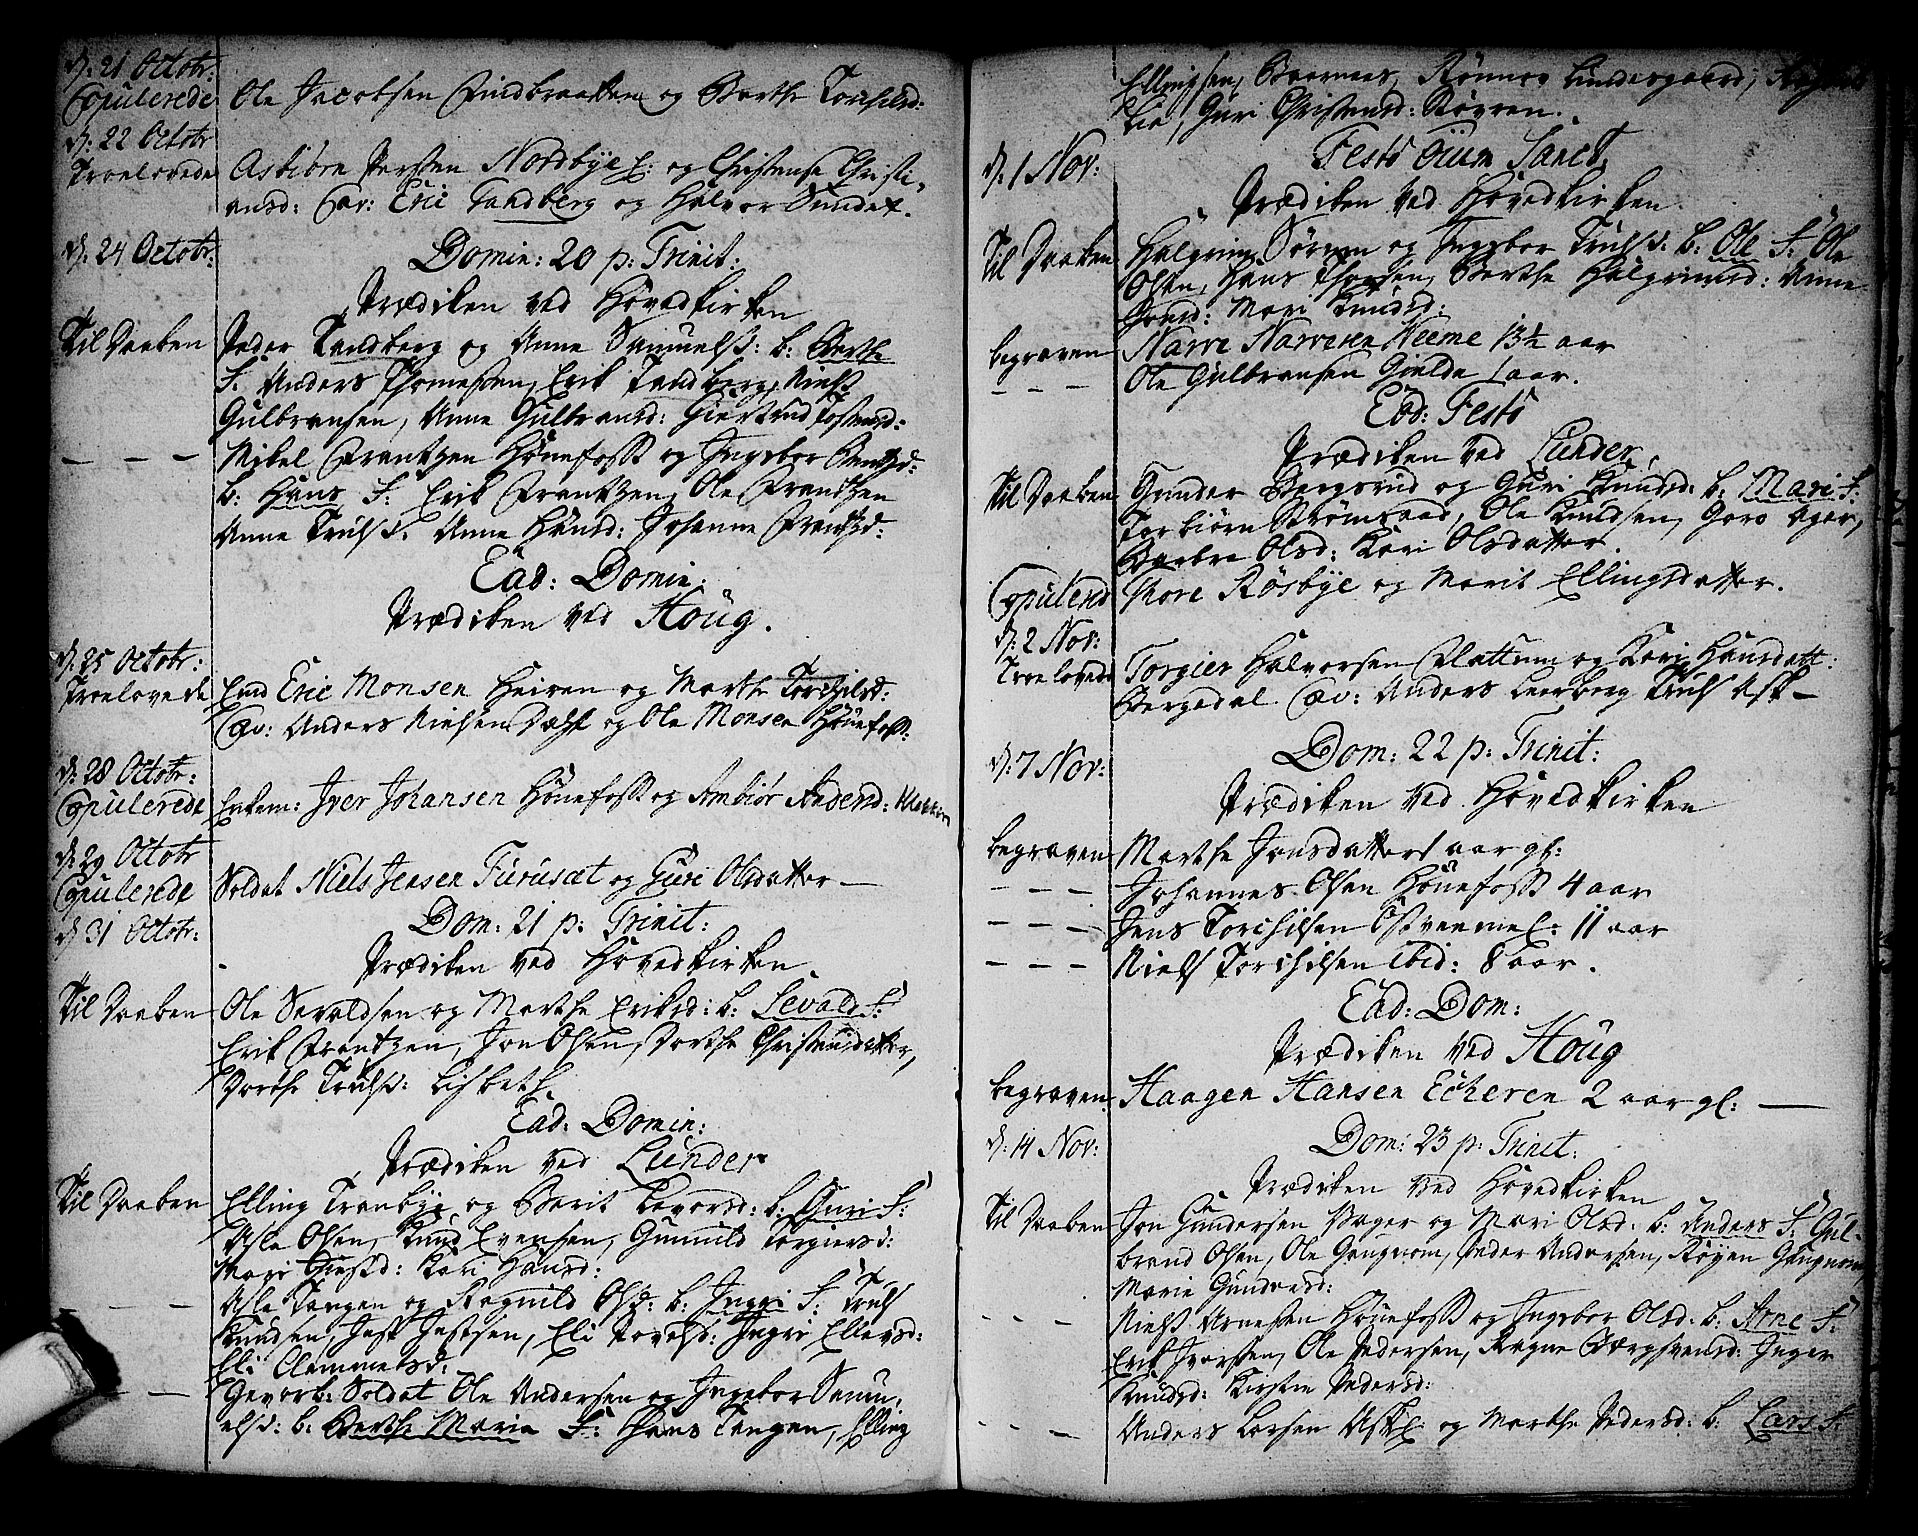 d: 21 Octobr:
Copulerede Ole Jacobsen Findbraatten og Berthe Torchilsd:
d: 22 Octobr
Troelovede Asbiörn Persen Nordbye og Christense Christi-
ansd: Cav: Eric Tandberg og Halvor Sundet.
d: 24 Octobr: Domin: 20 p: Trinit:
Prædiken ved Hovedkirken
Til Daaben Peder Tandberg og Anne Samuelsd: b: Berthe
F: Anders Thomesen, Erik Tandberg, Niels
Gulbransen, Anne Gulbransd: Giertrud Tostensd:
– – – Mikel Frantzen Hönefoss og Ingebor
b: Hans F: Erik Frantzen, Ole Frandtzen
Anne Trulsd. Anne Hansd: Johanne Frantzd:
Ead: Domin:
Prædiken ved Houg.
d: 25 Octobr:
Troelovede Eric Monsen Heieren og Marthe Torchilsd:
Cav: Anders Nielsen og Ole Monsen Hönefoss:
d: 28 Octobr:
Copulerede Enkem: Iver Johansen Hönefoss og Ambiör Andersd:
d: 29 Octobr
Copulerede Soldat Niels Jensen Furusæt og Guri Olsdatter —
d 31 Octobr: Dom: 21 p: Trinit:
Prædiken ved Hovedkirken
Til Daaben Ole Sevaldsen og Marthe Eriksd: b: Sevald F:
Erik Frantzen, Jon Olsen, Dorthe Christensdatter,
Dorthe Trulsd: Lisbeth
Ead: Domin:
Prædiken ved Lunder
Til Daaben Elling Tranbye og Berit b: Guri F:
Asle Olsen, Knud Evensen, Gunnild Torgiersd:
Mari Kari Hansd:
– – – Asle Tangen og Ragnild Olsd: b: Ingri F: Truls
Knudsen, Jesp Jespsen, Eli Ingri Ellevsd:
Eli Clemmetsd:
– – – Gevorb: Soldat Ole Andersen og Ingebor Samu-
elsd: b: Berthe Maria F: Hans Tangen, Elling
Ellingsen, Rönnov Lundesgaard,
Lie, Guri Christensd: Röyren.
d: 1 Nov: Festo Oium Sanct:
Prædiken ved Hovedkirken
Til Daaben Halgrim Sörum og Ingebor Trulsd: b: Ole F: Ole
Olsen, Hans Berthe Halgrimsd: Anne
Mari Knudsd:
begraven Narve Narvesen Veeme 13½ aar
– – Ole Gulbransen Gielde 1 aar.
Eod: Festo
Prædiken ved Lunder
Til Daaben Gunder Bergsrud og Guri Knudsd: b: Mari F:
Torbiörn Strömsoed, Ole Knudsen, Goro Ager,
Barbro Olsd: Kari Olsdatter.
Copulered Thore Rösbye og Marit Ellingsdatter.
d: 2 Nov:
Troelovede Torgier Halvorsen Flattum og Kari Hansdatt:
Bergedal Cav: Anders Leerberg Truls Ask—
d: 7 Nov: Dom: 22 p: Trinit:
Prædiken ved Hovedkirken
begraven Marthe Jonsdatter aar gl:
– – – Johannes Olsen Hönefoss 4 aar
– – – Jens Torchilsen 11 aar
– – – Niels Torchilsen ibid: 8 aar.
Ead: Dom:
Prædiken ved Houg
begraven Haagen Hansen Echeren 2 aar gl: —
d: 14 Nov: Dom: 23 p: Trinit:
Prædiken ved Hovedkirken
Til Daaben Jon Gundersen Bager og Mari Olsd: b: Anders F: Gul-
brand Olsen, Ole Gaugnom, Peder Andersen, Röyen Gaugnom
Marie Gundersd:
– – – Niels Arnesen Hönefoss og Ingebor Olsd: b: Arne F:
Erik Iversen, Ole Pedersen, Ragne Bergsvensd: Inger
Knudsd: Kirstin Pedersd:
– – – Anders Larsen Ask og Marthe Pedersd: b: Lars F: